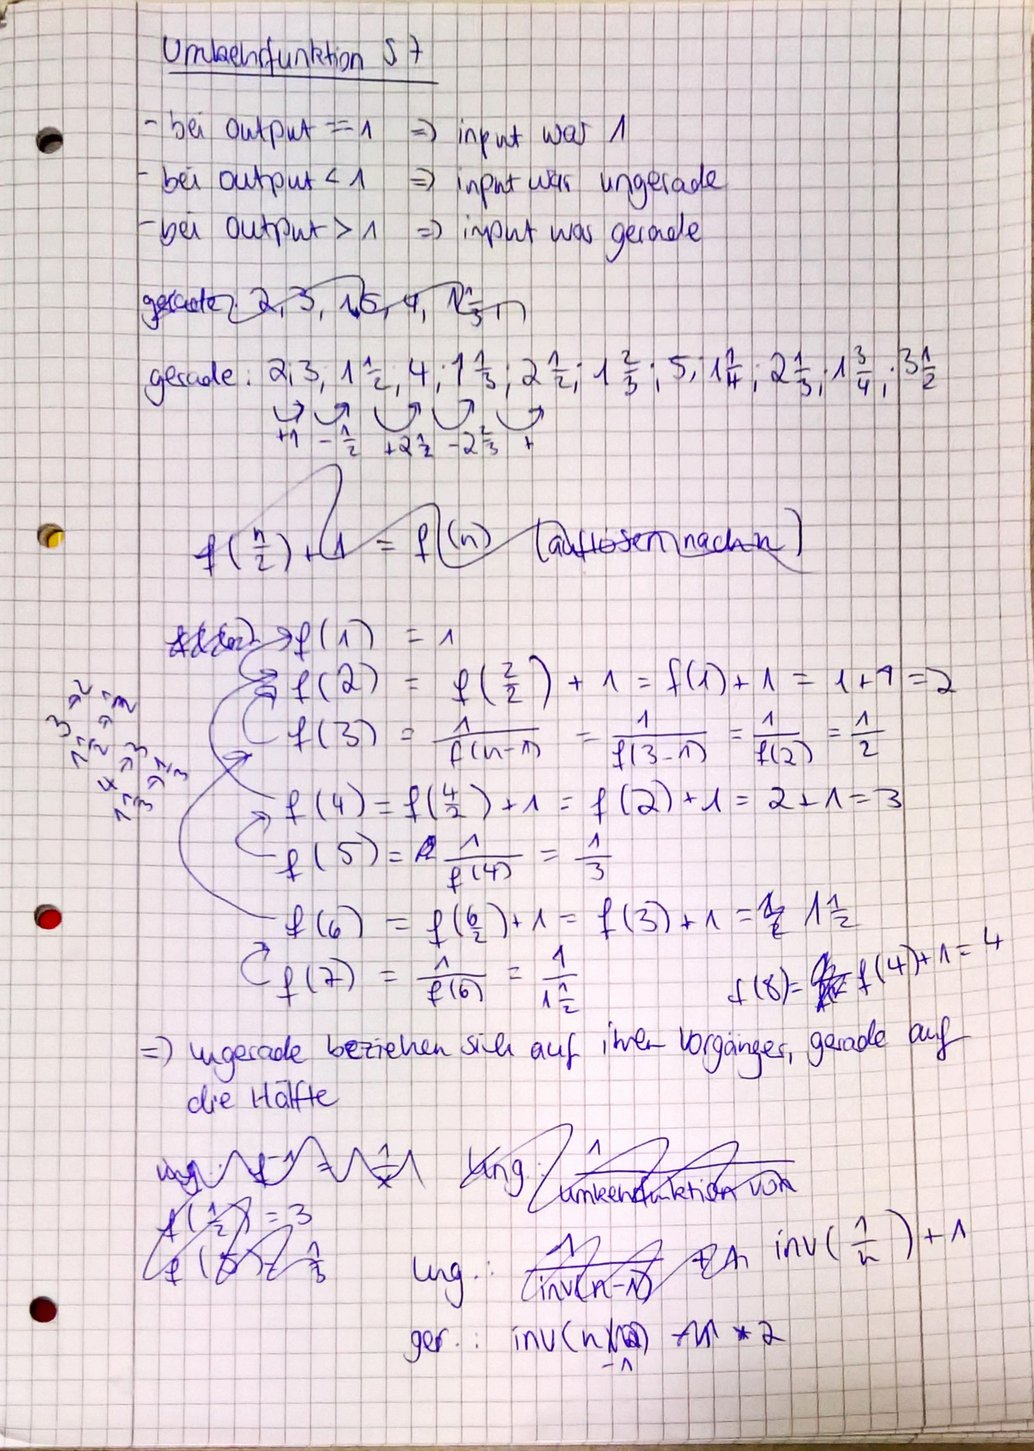 Umkehrfunktion S7
- bei output == 1 => input war 1
- bei output < 1 => input war ungerade
- bei output > 1 => input war gerade
gerade: 2, 3, 1,5, 4, 1 1/3
gerade: 2; 3; 1 1/2; 4; 1 1/3; 2 1/2; 1 2/3; 5; 1 1/4; 2 1/3; 1 3/4; 3 1/2
+1 -1 1/2 +2 1/2 -2 2/3 +
f(n/2) + 1 = f(n) (auflösen nach n)
f(1) = 1
f(2) = f(2/2) + 1 = f(1) + 1 = 1+1 = 2
f(3) = 1/f(n-1) = 1/f(3-1) = 1/f(2) = 1/2
f(4) = f(4/2) + 1 = f(2) + 1 = 2+1 = 3
f(5) = 1/f(4) = 1/3
f(6) = f(6/2) + 1 = f(3) + 1 = 1 1/2
f(7) = 1/f(6) = 1/(1 1/2)
f(8) = f(4) + 1 = 4
=> ungerade beziehen sich auf ihren Vorgänger, gerade auf
die Hälfte
ung.: 1/Umkehrfunktion von
f(1/2) = 3
f(5) = 1/3
ung.: 1/inv(n-1) inv(1/n) + 1
ger.: inv(n-1) * 2